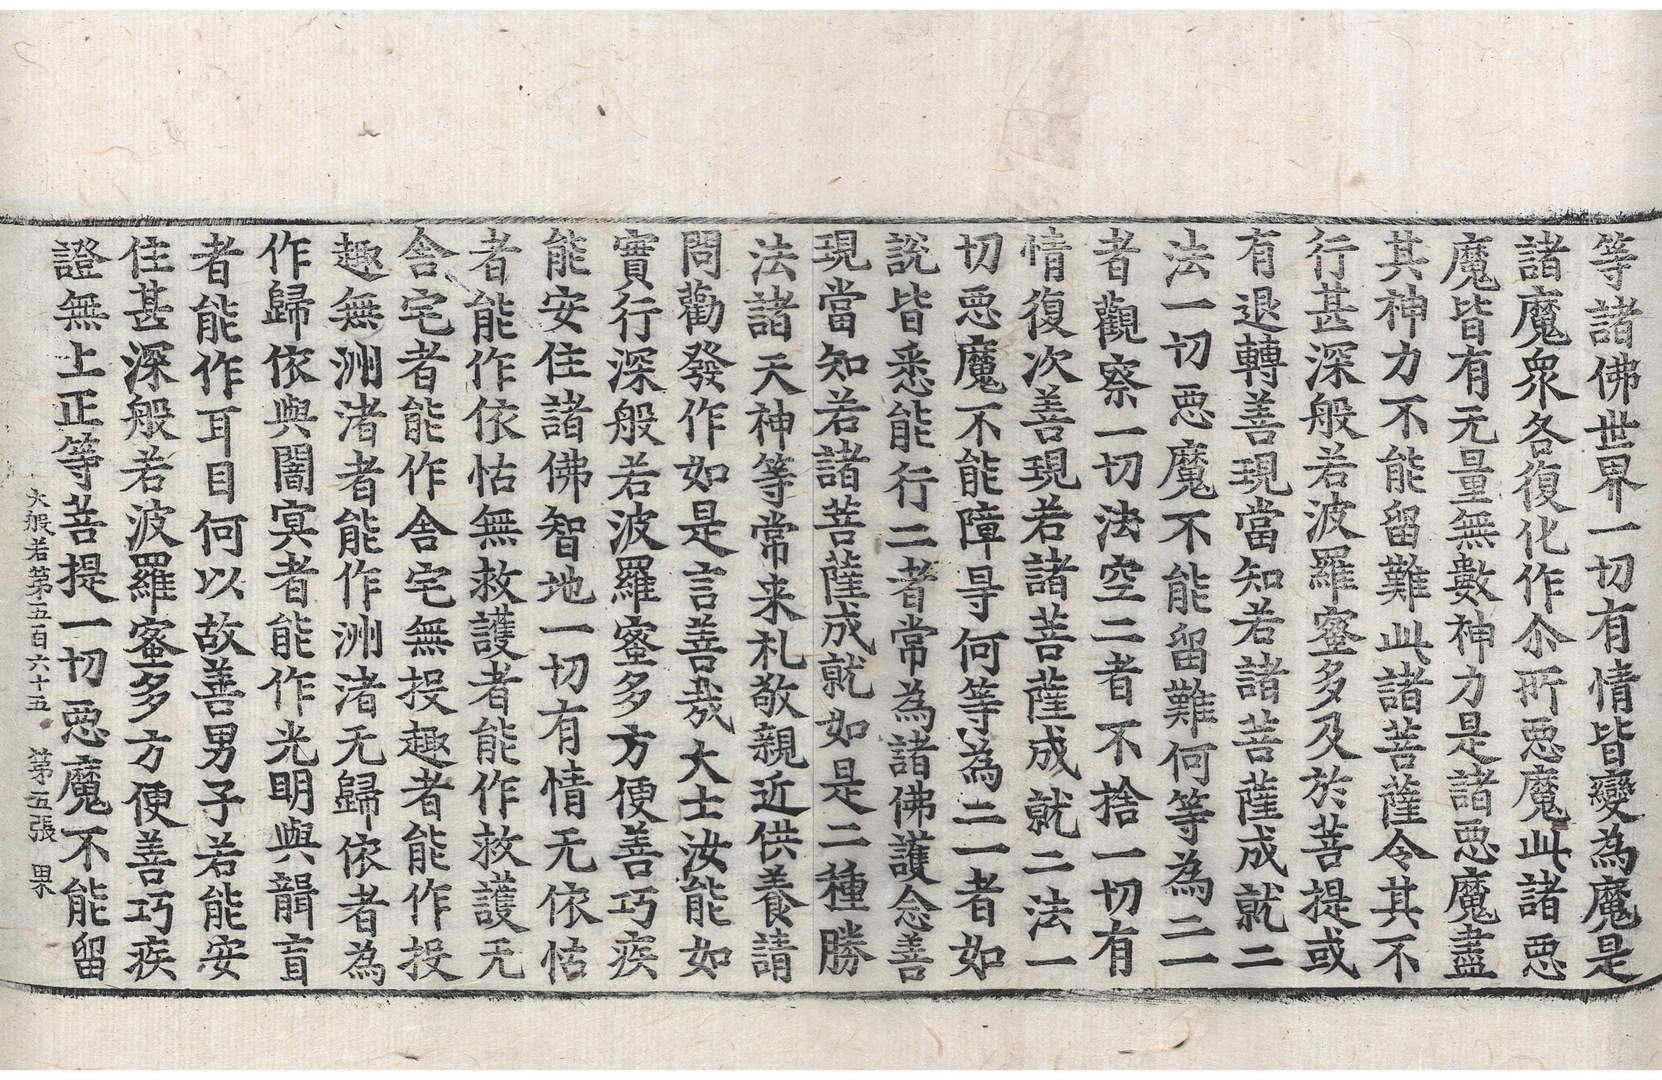 等諸佛世界一切有情皆變為魔是
諸魔眾各復化作尒所惡魔此諸惡
魔皆有无量無數神力是諸惡魔盡
其神力不能留難此諸菩薩令其不
行甚深般若波羅蜜多及於菩提或
有退轉善現當知若諸菩薩成就二
法一切惡魔不能留難何等為二一
者觀察一切法空二者不捨一切有
情復次善現若諸菩薩成就二法一
切惡魔不能障㝵何等為二一者如
說皆悉能行二者常為諸佛護念善
現當知若諸菩薩成就如是二種勝
法諸天神等常来礼敬親近供養請
問勸發作如是言善哉大士汝能如
實行深般若波羅蜜多方便善巧疾
能安住諸佛智地一切有情无依怙
者能作依怙無救護者能作救護无
舍宅者能作舍宅無投趣者能作投
趣無洲渚者能作洲渚无歸依者為
作歸依與闇冥者能作光明與聾盲
者能作耳目何以故善男子若能安
住甚深般若波羅蜜多方便善巧疾
證無上正等菩提一切惡魔不能留
大般若第五百六十五 第五張 果